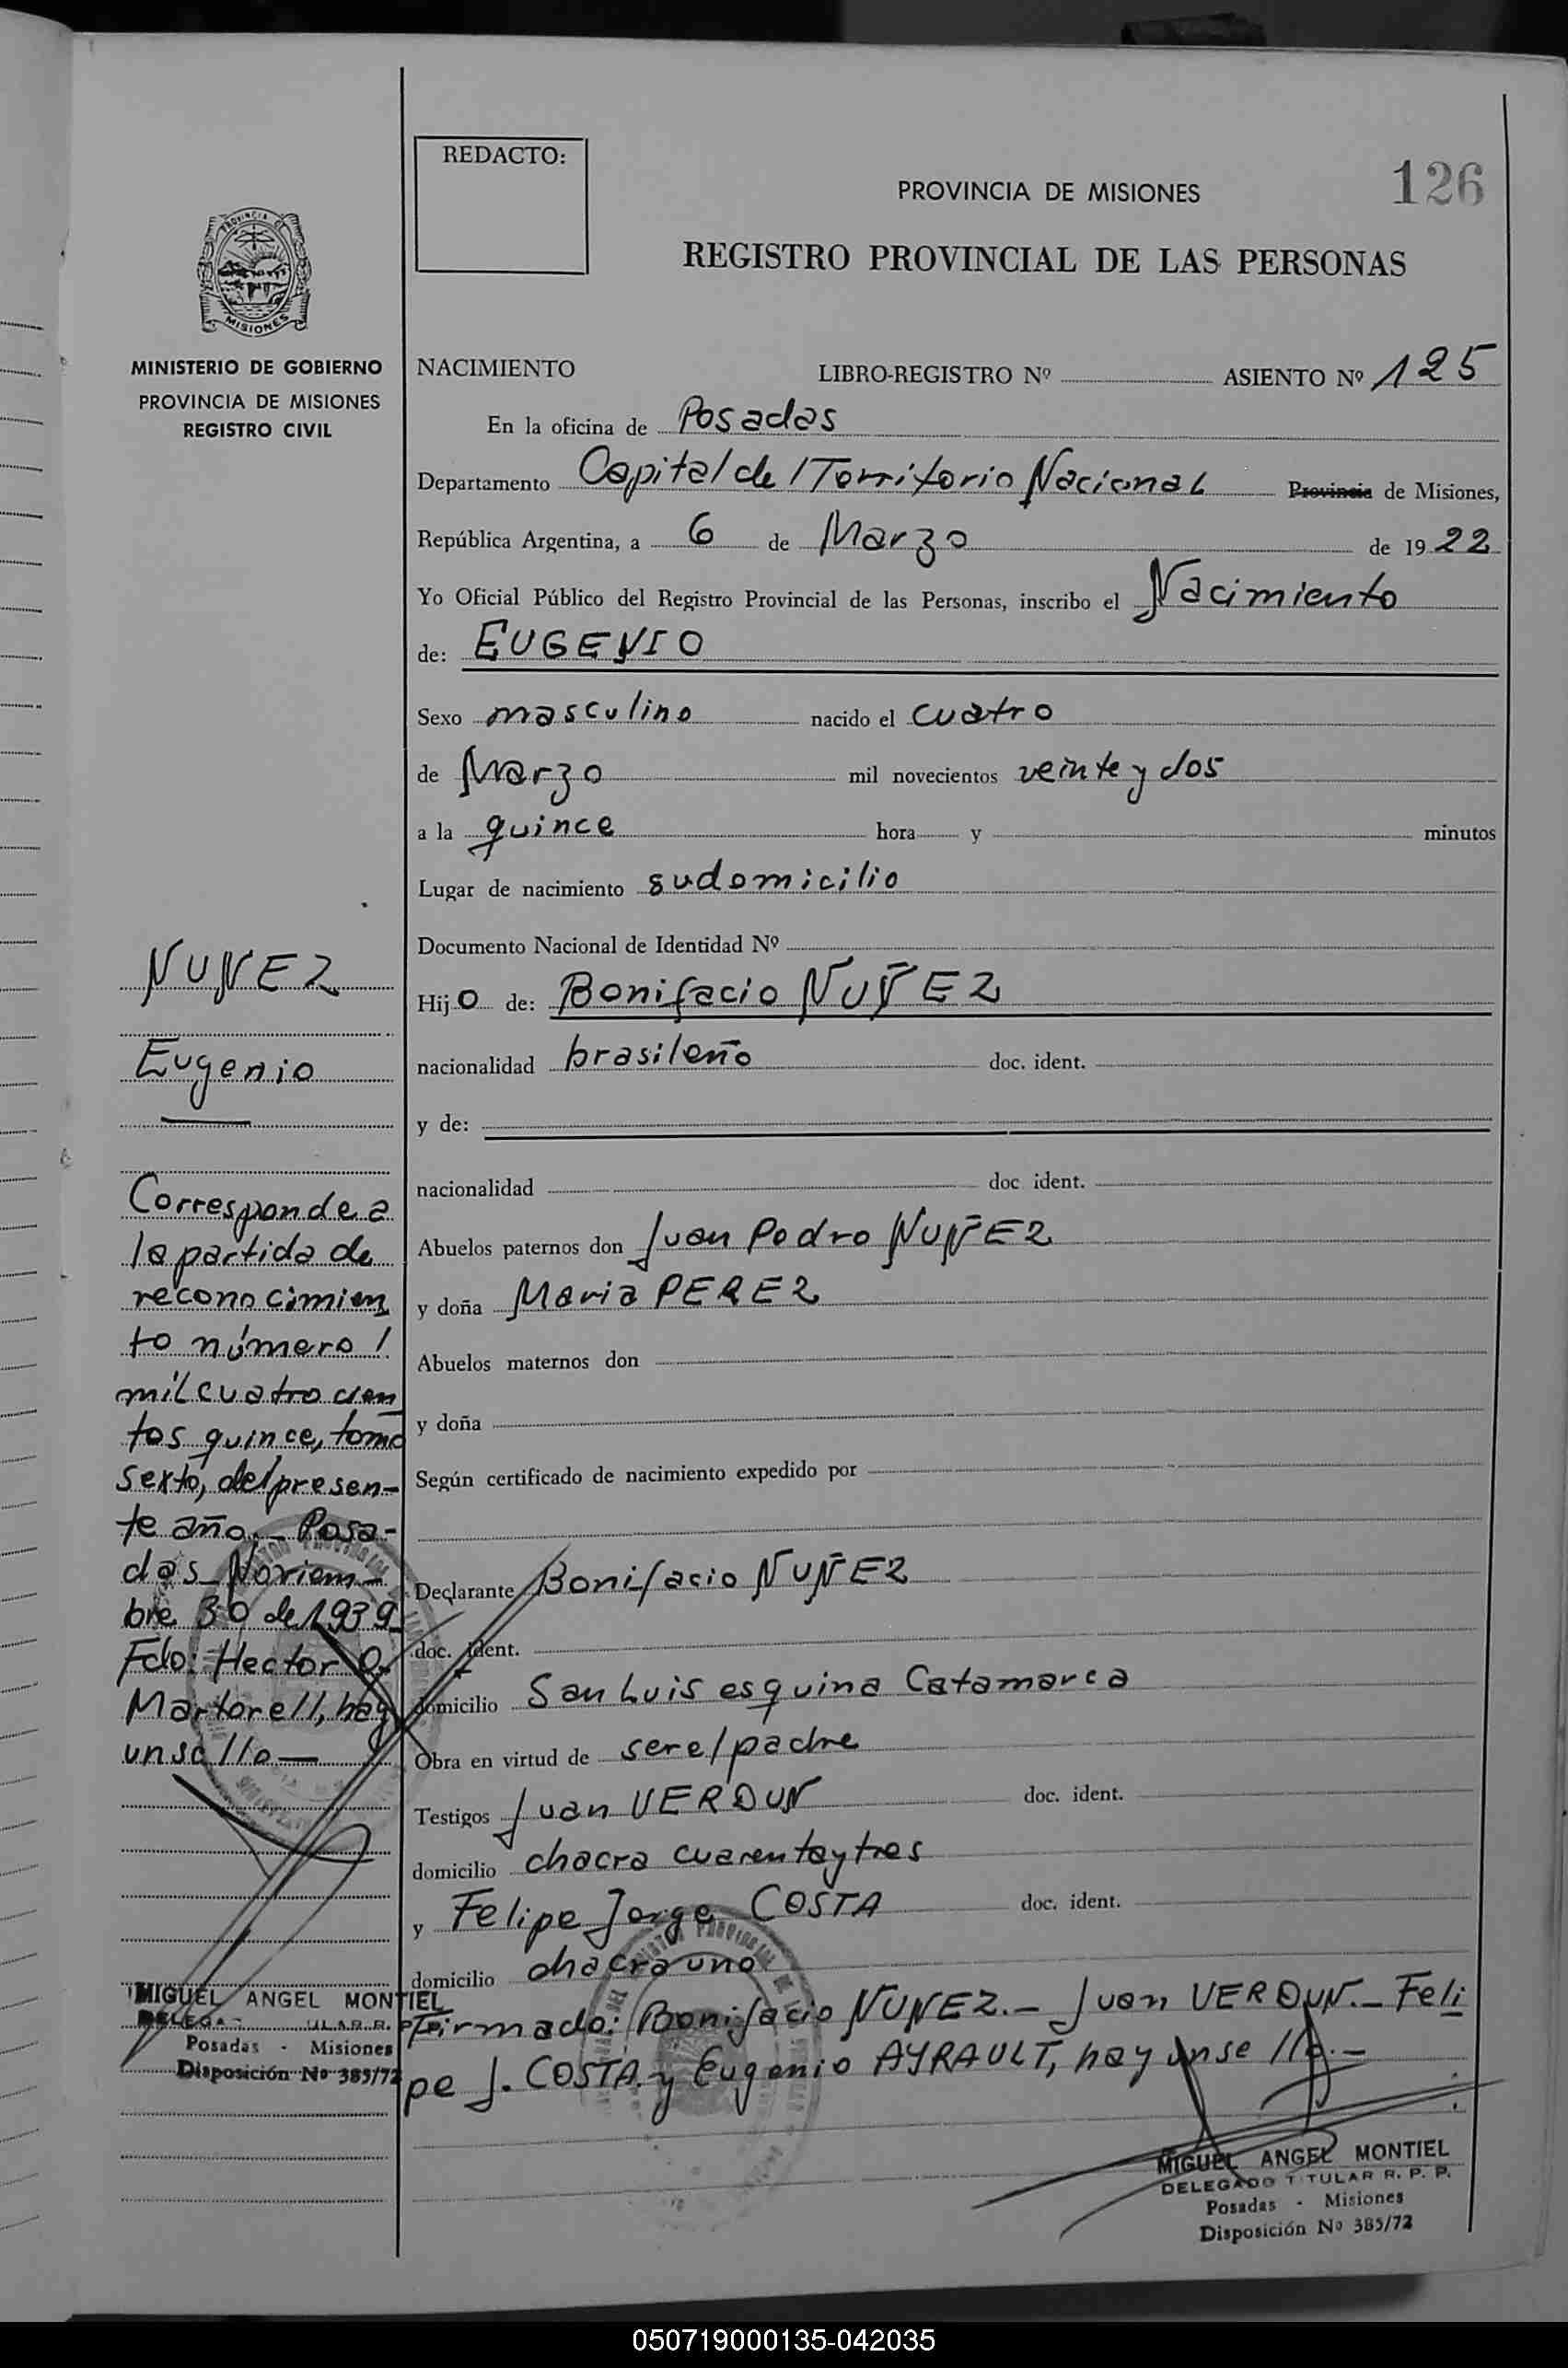 REDACTO:
126
PROVINCIA DE MISIONES
REGISTRO PROVINCIAL DE LAS PERSONAS
PROVINCIA DE
MISIONES
MINISTERIO DE GOBIERNO
PROVINCIA DE MISIONES
REGISTRO CIVIL
NACIMIENTO LIBRO-REGISTRO Nº ASIENTO Nº 125
En la oficina de Posadas
Departamento Capital del Territorio Nacional Provincia de Misiones,
República Argentina, a 6 de Marzo de 1922
Yo Oficial Público del Registro Provincial de las Personas, inscribo el Nacimiento
de: EUGENIO
Sexo masculino nacido el cuatro
de Marzo mil novecientos veinte y dos
a la quince hora y minutos
Lugar de nacimiento su domicilio
Documento Nacional de Identidad Nº
Hijo de: Bonifacio NUÑEZ
nacionalidad brasileño doc. ident.
y de:
nacionalidad doc ident.
Abuelos paternos don Juan Pedro NUÑEZ
y doña Maria PEREZ
Abuelos maternos don
y doña
Según certificado de nacimiento expedido por
Declarante Bonifacio NUÑEZ
doc. ident.
domicilio San Luis esquina Catamarca
Obra en virtud de ser el padre
Testigos Juan VERDUN doc. ident.
domicilio chacra cuarenta y tres
y Felipe Jorge COSTA doc. ident.
domicilio chacra uno
Firmado: Bonifacio NUNEZ.- Juan VERDUN.- Feli
pe J. COSTA. y Eugenio AYRAULT, hay un sello.-
MIGUEL ANGEL MONTIEL
DELEGADO TITULAR R. P. P.
Posadas - Misiones
Disposición Nº 385/72
NUNEZ
Eugenio
Corresponde a
la partida de
reconocimien
to número
mil cuatrocien
tos quince, tomo
sexto, del presen-
te año.- Posa-
das Noviem-
bre 30 de 1939
Fdo: Hector
Martorell, hay
un sello—
MIGUEL ANGEL MONTIEL
Posadas - Misiones
Disposición Nº 385/72
050719000135-042035